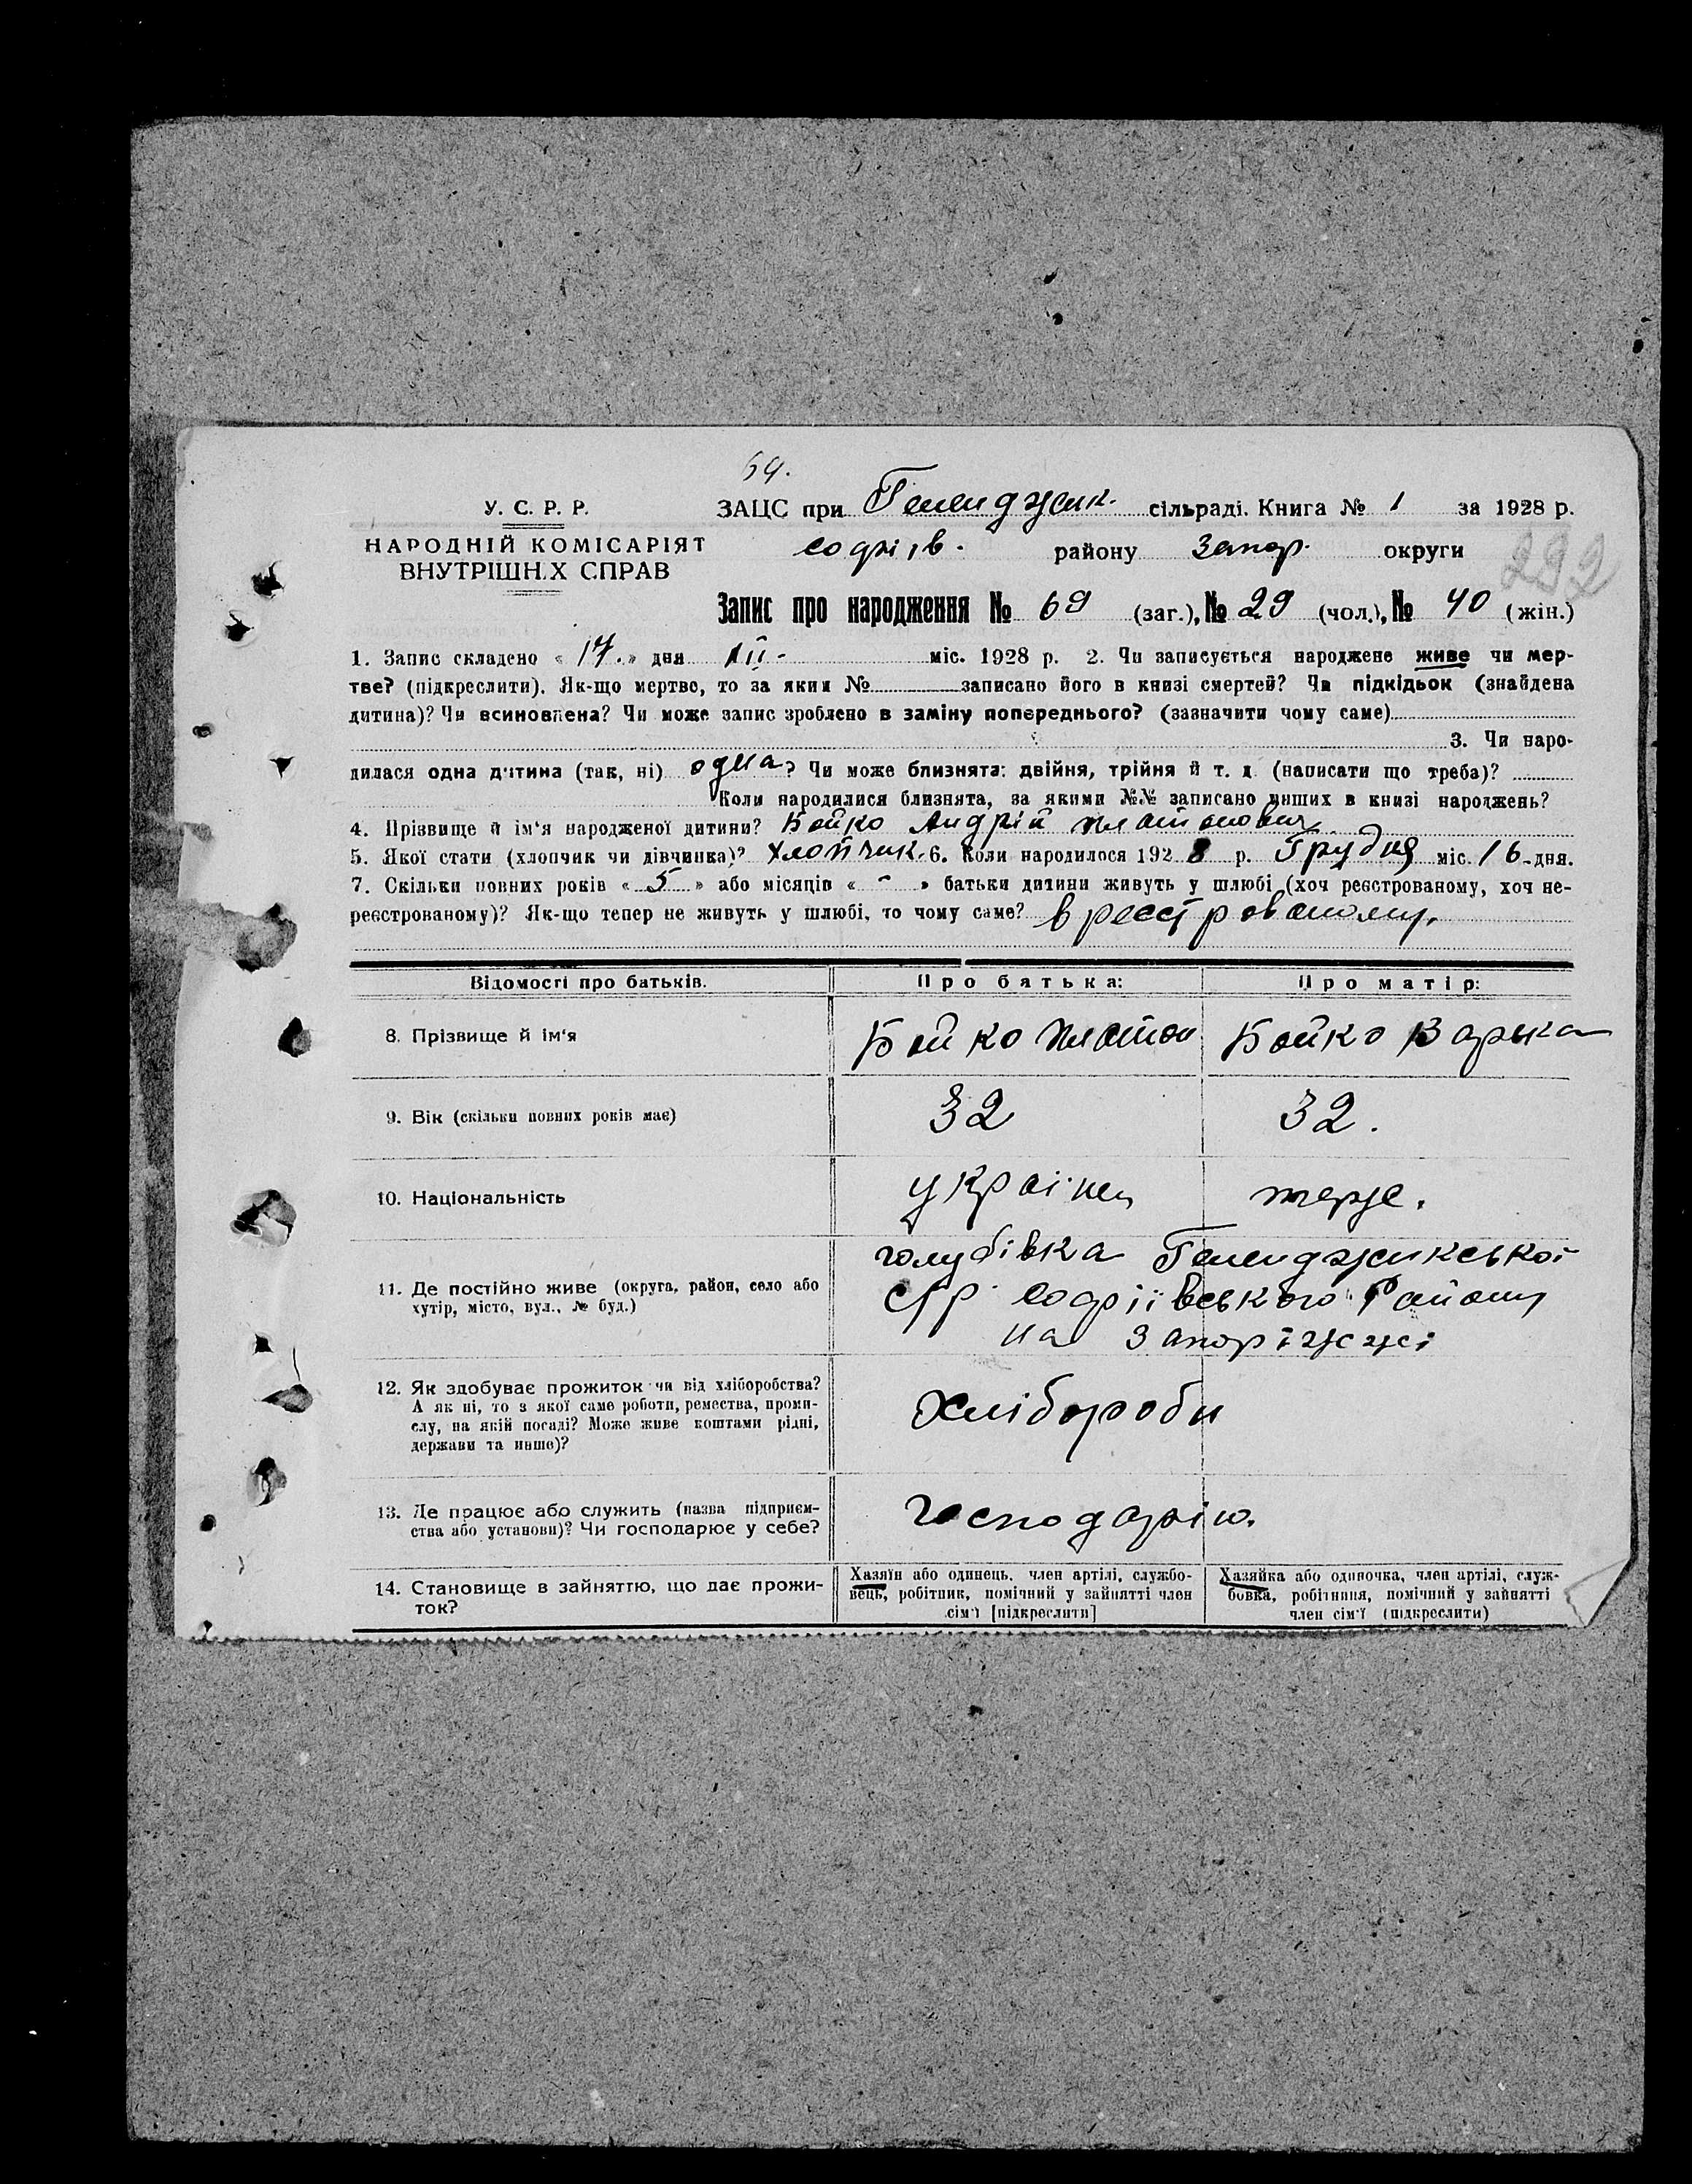 69.
У. С. Р. Р.
НАРОДНІЙ КОМІСАРІЯТ
ВНУТРІШНІХ СПРАВ
ЗАЦС при Геленджик. сільраді. Книга № 1 за 1928 р.
софіїв. району Запор. округи
292
Запис про народження № 69 (заг.), № 29 (чол.), № 40 (жін.)
1. Запис складено « 17. » дня XII - міс. 1928 р. 2. Чи записується народжене живе чи мер-
тве? (підкреслити). Як-що мертве, то за яким № записано його в книзі смертей? Чи підкідьок (знайдена
дитина)? Чи всиновлена? Чи може запис зроблено в заміну попереднього? (зазначити чому саме)
3. Чи наро-
дилася одна дитина (так, ні) одна? Чи може близнята: двійня, трійня й т. д. (написати що треба)?
Коли народилися близнята, за якими №№ записано инших в книзі народжень?
4. Прізвище й ім'я народженої дитини? Бойко Андрій Платонович
5. Якої стати (хлопчик чи дівчинка)? Хлопчик. 6. Коли народилося 1928 р. Грудня міс. 16 - дня.
7. Скільки повних років « 5 » або місяців « - » батьки дитини живуть у шлюбі (хоч реєстрованому, хоч не-
реєстрованому)? Як-що тепер не живуть у шлюбі, то чому саме? в реєстрованому.
Відомості про батьків. Про батька: Про матір:
8. Прізвище й ім'я Бойко Платон Бойко Варька
9. Вік (скільки повних років має) 32 32.
10. Національність українец теже.
11. Де постійно живе (округа, район, село або
хутір, місто, вул., № буд.)
голубівка Геленджикської
с/р софіївського району
на Запоріжжі
12. Як здобуває прожиток чи від хліборобства?
А як ні, то з якої саме роботи, ремества, проми-
слу, на якій посаді? Може живе коштами рідні,
держави та инше)?
Хлібороби
13. Де працює або служить (назва підприєм-
ства або установи)? Чи господарює у себе?
господарію.
14. Становище в зайняттю, що дає прожи-
ток?
Хазяїн або одинець, член артілі, службо-
вець, робітник, помічний у зайнятті член
сім'ї [підкреслити]
Хазяйка або одиночка, член артілі, служ-
бовка, робітниця, помічний у зайнятті
член сім'ї (підкреслити)